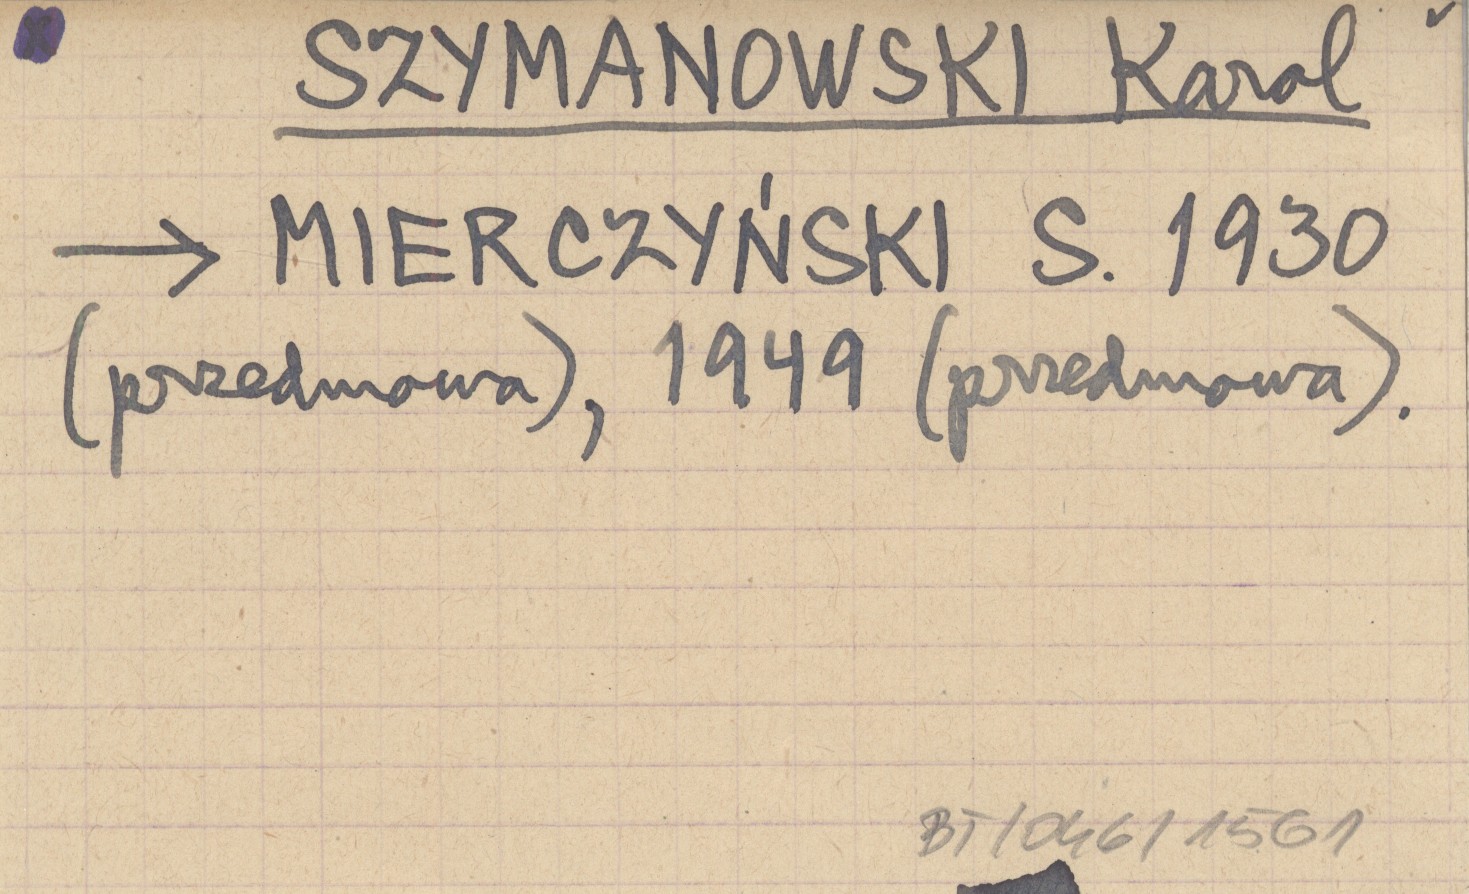 SZYMANOWSKI Karol
→ MIERCZYŃSKI S. 1930
(przedmowa), 1949 (przedmowa).
BT/046/1561